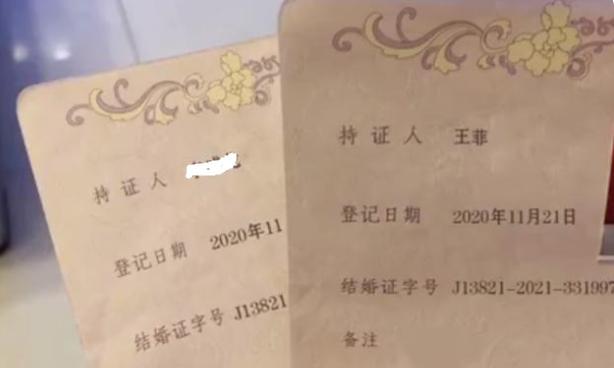 持证人
登记日期 2020年11
结婚证字号 J13821
持证人 王菲
登记日期 2020年11月21日
结婚证字号 J13821-2021-331997
备注